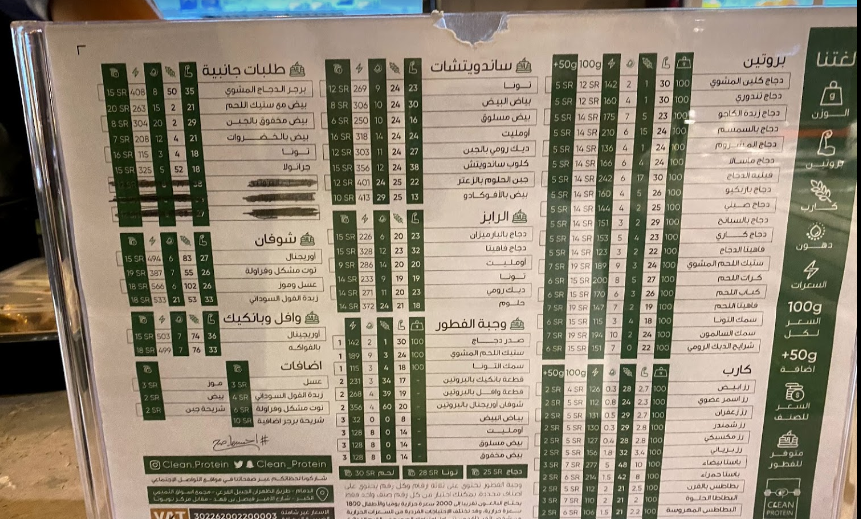 لغتنا
الوزن
بروتين
كارب
دهون
السعرات
100g
السعر
لكل
+50g
اضافة
السعر
للصنف
متوفر
للفطور
CLEAN
PROTEIN
بروتين
100g +50g
دجاج كلين المشوي 100 30 1 2 142 12 SR 5 SR
دجاج تندوري 100 30 1 4 160 12 SR 5 SR
دجاج زبدة الكاجو 100 23 5 7 175 14 SR 5 SR
دجاج بالسمسم 100 24 15 6 210 14 SR 5 SR
دجاج المشروم 100 24 1 4 136 14 SR 5 SR
دجاج ماسالا 100 24 4 6 166 14 SR 5 SR
فيليه الدجاج 100 30 17 6 242 14 SR 5 SR
دجاج باربكيو 100 26 5 4 160 14 SR 5 SR
دجاج صيني 100 25 2 4 144 14 SR 5 SR
دجاج بالسبانخ 100 29 2 3 151 14 SR 5 SR
دجاج كاري 100 23 4 5 153 14 SR 5 SR
فاهيتا الدجاج 100 22 2 3 123 14 SR 5 SR
ستيك اللحم المشوي 100 24 3 9 189 19 SR 7 SR
كرات اللحم 100 27 5 8 200 15 SR 6 SR
كباب اللحم 100 26 3 6 170 15 SR 6 SR
فاهيتا اللحم 100 19 2 7 147 19 SR 7 SR
سمك التونا 100 18 4 3 115 15 SR 6 SR
سمك السالمون 100 24 2 10 194 19 SR 7 SR
شرايح الديك الرومي 100 22 0 7 151 15 SR 6 SR
كارب
100g +50g
رز ابيض 100 2.7 28 0.3 126 4 SR 2 SR
رز اسمر عضوي 100 2.3 24 0.8 112 5 SR 2 SR
رز زعفران 100 2.7 29 0.5 131 5 SR 2 SR
رز شمندر 100 2.8 29 0.3 130 5 SR 2 SR
رز مكسيكي 100 2.8 28 0.4 127 5 SR 2 SR
رز برياني 100 3.4 32 1.8 156 5 SR 2 SR
باستا بيضاء 100 10 48 5 277 7 SR 3 SR
باستا حمراء 100 8 42 1.5 214 6 SR 2 SR
بطاطس بالفرن 100 2.5 21 2 112 5 SR 2 SR
البطاطا الحلوة 100 2 21 2 110 7 SR 3 SR
البطاطس المهروسة 100 2.2 21 1.5 106 5 SR 2 SR
ساندويتشات
تونا 23 24 9 269 12 SR
بياض البيض 30 24 10 306 8 SR
بيض مسلوق 16 24 10 250 6 SR
أومليت 24 24 14 318 16 SR
ديك رومي بالجبن 27 24 11 303 12 SR
كلوب ساندويتش 38 24 12 356 15 SR
جبن الحلوم بالزعتر 22 25 24 401 12 SR
بيض بالأفوكادو 13 25 29 413 10 SR
الرابز
دجاج بالبارميزان 23 20 6 226 15 SR
دجاج فاهيتا 32 23 12 328 15 SR
أومليت 20 20 14 286 9 SR
تونا 19 19 9 233 14 SR
ديك رومي 23 20 11 271 14 SR
حلوم 18 21 24 372 14 SR
وجبة الفطور
صدر دجاج 100 30 1 2 142 1
ستيك اللحم المشوي 100 24 3 9 189 1
سمك التونا 100 18 4 3 115 1
قطعة بانكيك بالبروتين - 17 34 3 231 2
قطعة وافل بالبروتين - 19 39 4 268 2
شوفان أوريجنال بالبروتين - 20 60 4 356 2
بياض البيض - 8 0 0 32 3
أومليت - 14 0 8 128 3
بيض مسلوق - 14 0 8 128 3
بيض مخفوق - 14 0 8 128 3
دجاج 25 SR
تونا 28 SR
لحم 30 SR
طلبات جانبية
برجر الدجاج المشوي 35 50 8 408 15 SR
بيض مع ستيك اللحم 21 2 15 263 20 SR
بيض مخفوق بالجبن 29 2 20 304 8 SR
بيض بالخضروات 21 4 12 208 7 SR
تونا 18 4 3 115 16 SR
جرانولا 18 52 5 325 15 SR
شوفان
أوريجنال 27 83 6 494 15 SR
توت مشكل وفراولة 26 55 7 387 19 SR
عسل وموز 26 102 6 566 18 SR
زبدة الفول السوداني 33 53 21 533 18 SR
وافل وبانكيك
أوريجنال 36 74 7 503 15 SR
بالفواكه 33 76 7 499 18 SR
اضافات
عسل 3 SR
زبدة الفول السوداني 4 SR
توت مشكل وفراولة 6 SR
شريحة برجر اضافية 10 SR
موز 3 SR
بيض 2 SR
شريحة جبن 2 SR
Clean.Protein Clean_Protein
شاركونا لحظاتكم عبر صفحاتنا في مواقع التواصل الاجتماعي
302262002200003